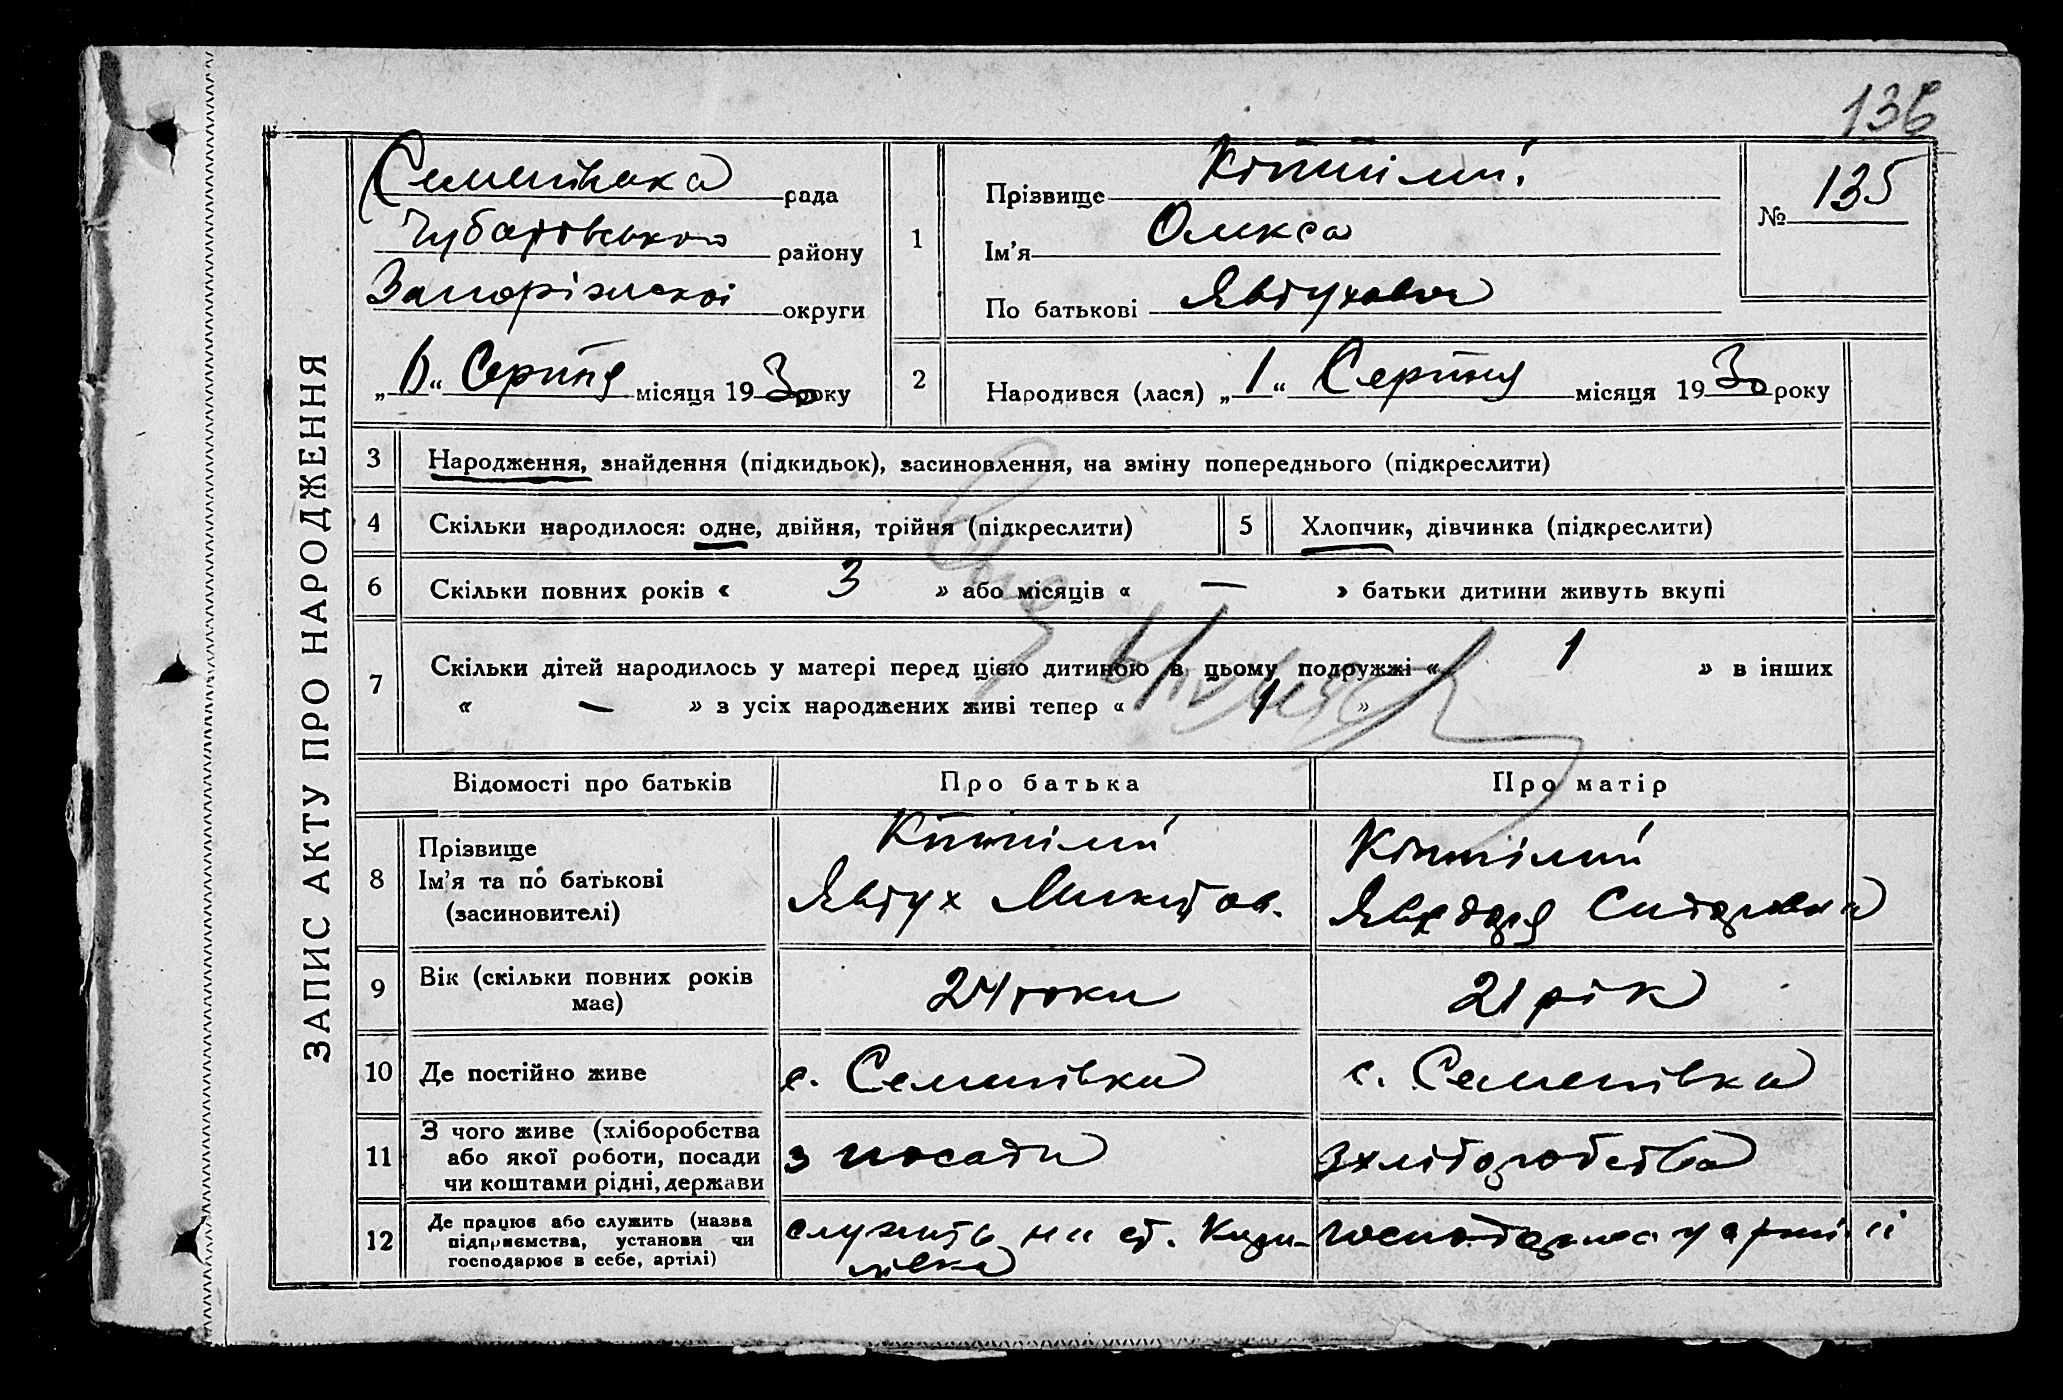 136
ЗАПИС АКТУ ПРО НАРОДЖЕННЯ
Семенівська рада
Чубарівського району
Запоріжської округи
„6“ Серпня місяця 1930 року
1
Прізвище
Ім'я Олекса
По батькові Явтухович
№ 135
2
Народився (лася) „1“ Серпня місяця 1930 року
3 Народження, знайдення (підкидьок), засиновлення, на зміну попереднього (підкреслити)
4 Скільки народилося: одне, двійня, трійня (підкреслити)
5 Хлопчик, дівчинка (підкреслити)
6 Скільки повних років « 3 » або місяців « — » батьки дитини живуть вкупі
7 Скільки дітей народилось у матері перед цією дитиною в цьому подружжі « 1 » в інших
« — » з усіх народжених живі тепер « 1 »
Відомості про батьків
Про батька
Про матір
8 Прізвище
Ім'я та по батькові
(засиновителі)
Явтух Микитов.
Сидоровна
9 Вік (скільки повних років
має)
24 роки
21 рік
10 Де постійно живе
с. Семенівка
с. Семенівка
11 З чого живе (хліборобства
або якої роботи, посади
чи коштами рідні, держави
з посади
з хліборобства
12 Де працює або служить (назва
підприємства, установи чи
господарює в себе, артілі)
служить на ст.
господарює у артілі